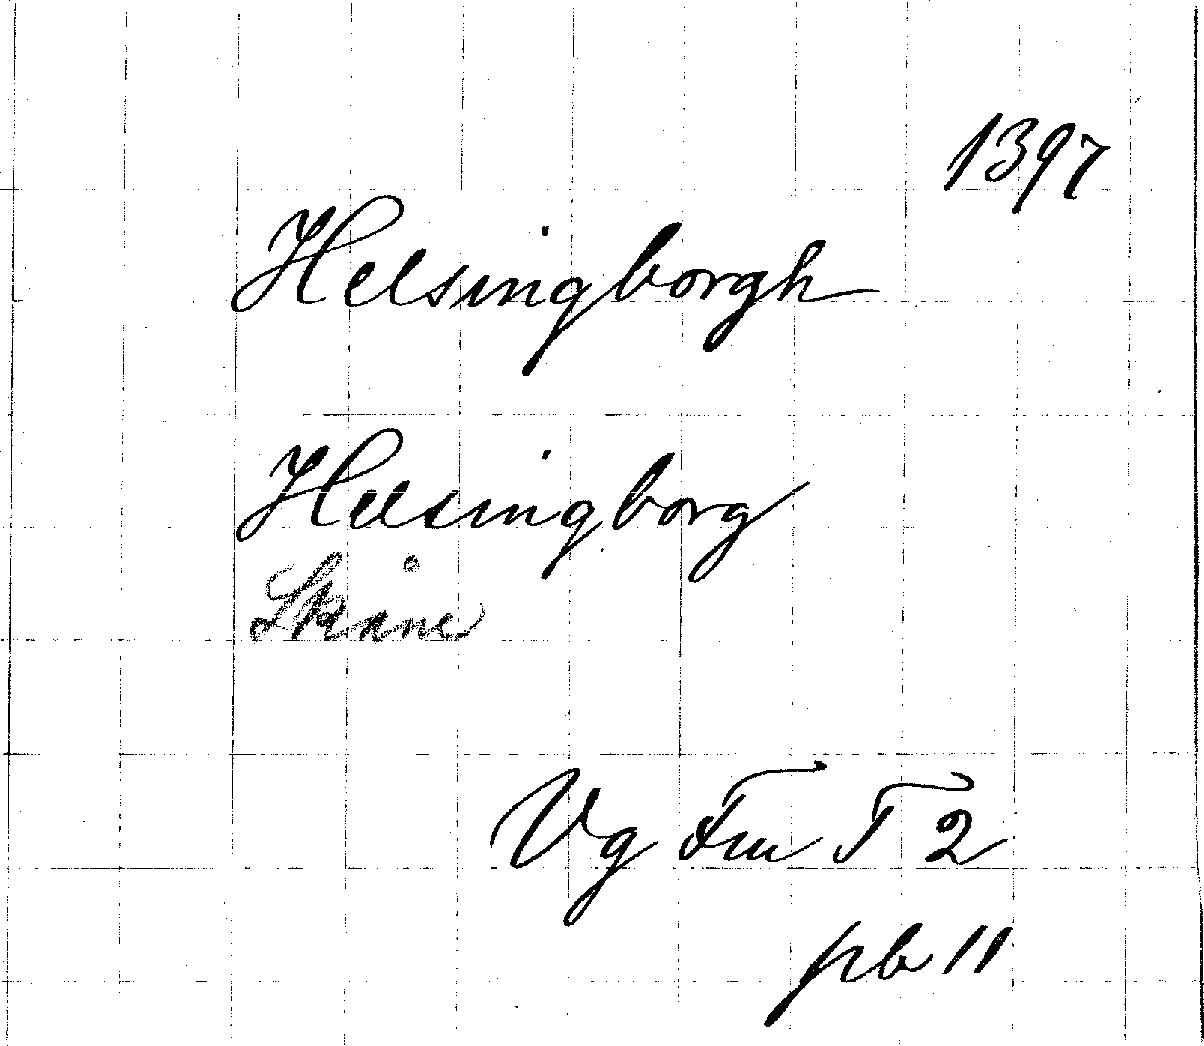 1397
Helsingborgh
Helsingborg
Skåne
Vg Fm T 2
pb 11